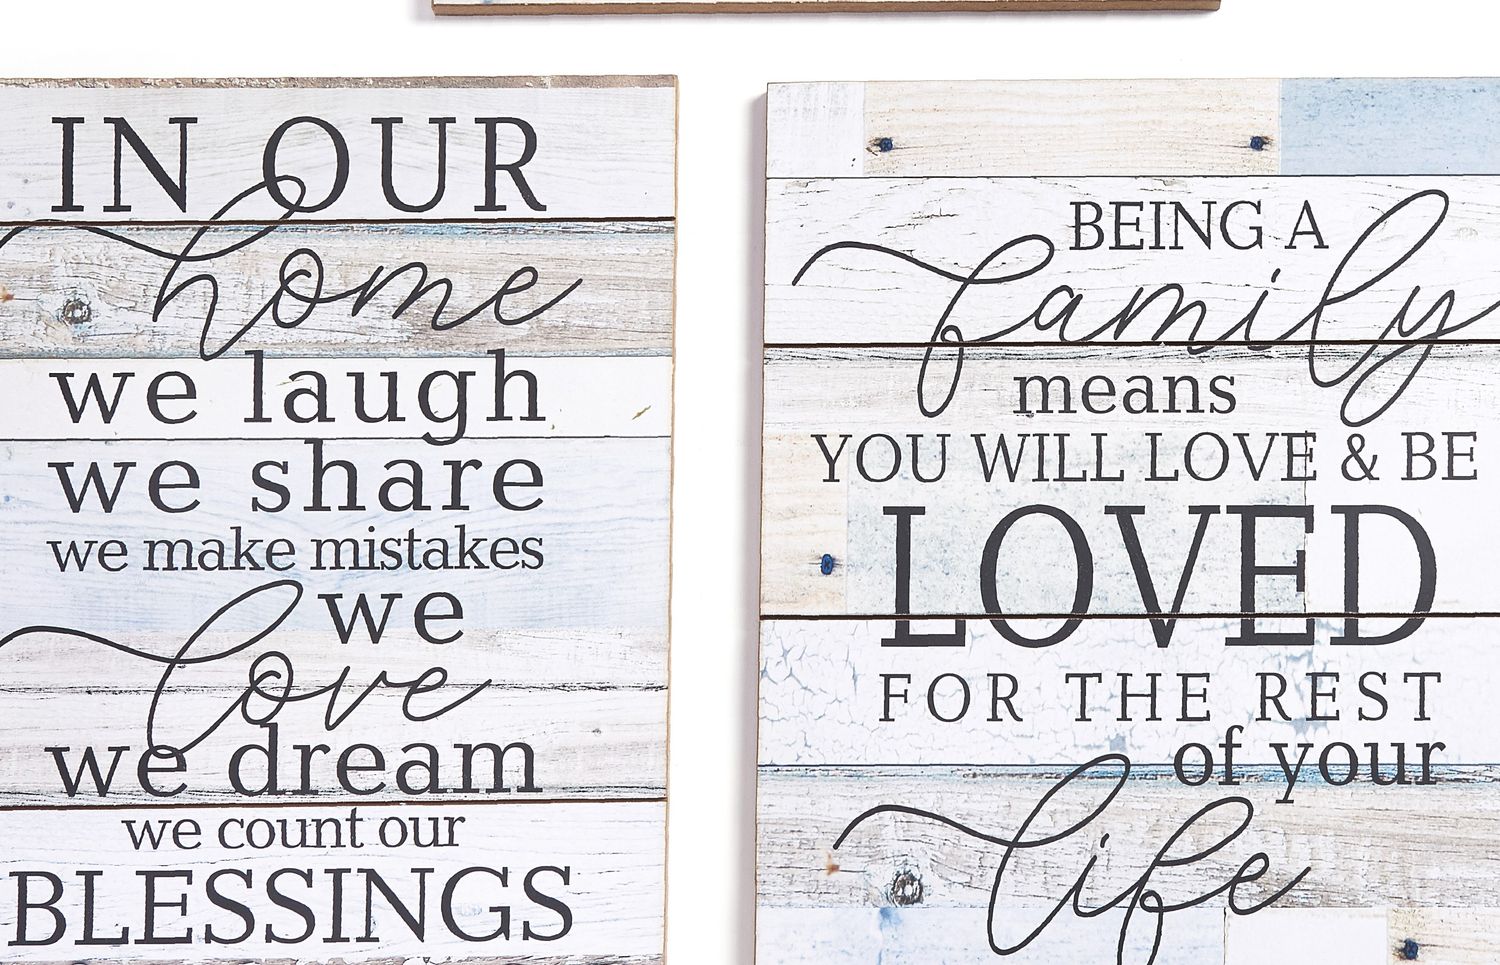 IN OUR
home
we laugh
we share
we make mistakes
we
love
we dream
we count our
BLESSINGS
BEING A
family
means
YOU WILL LOVE & BE
LOVED
FOR THE REST
of your
life